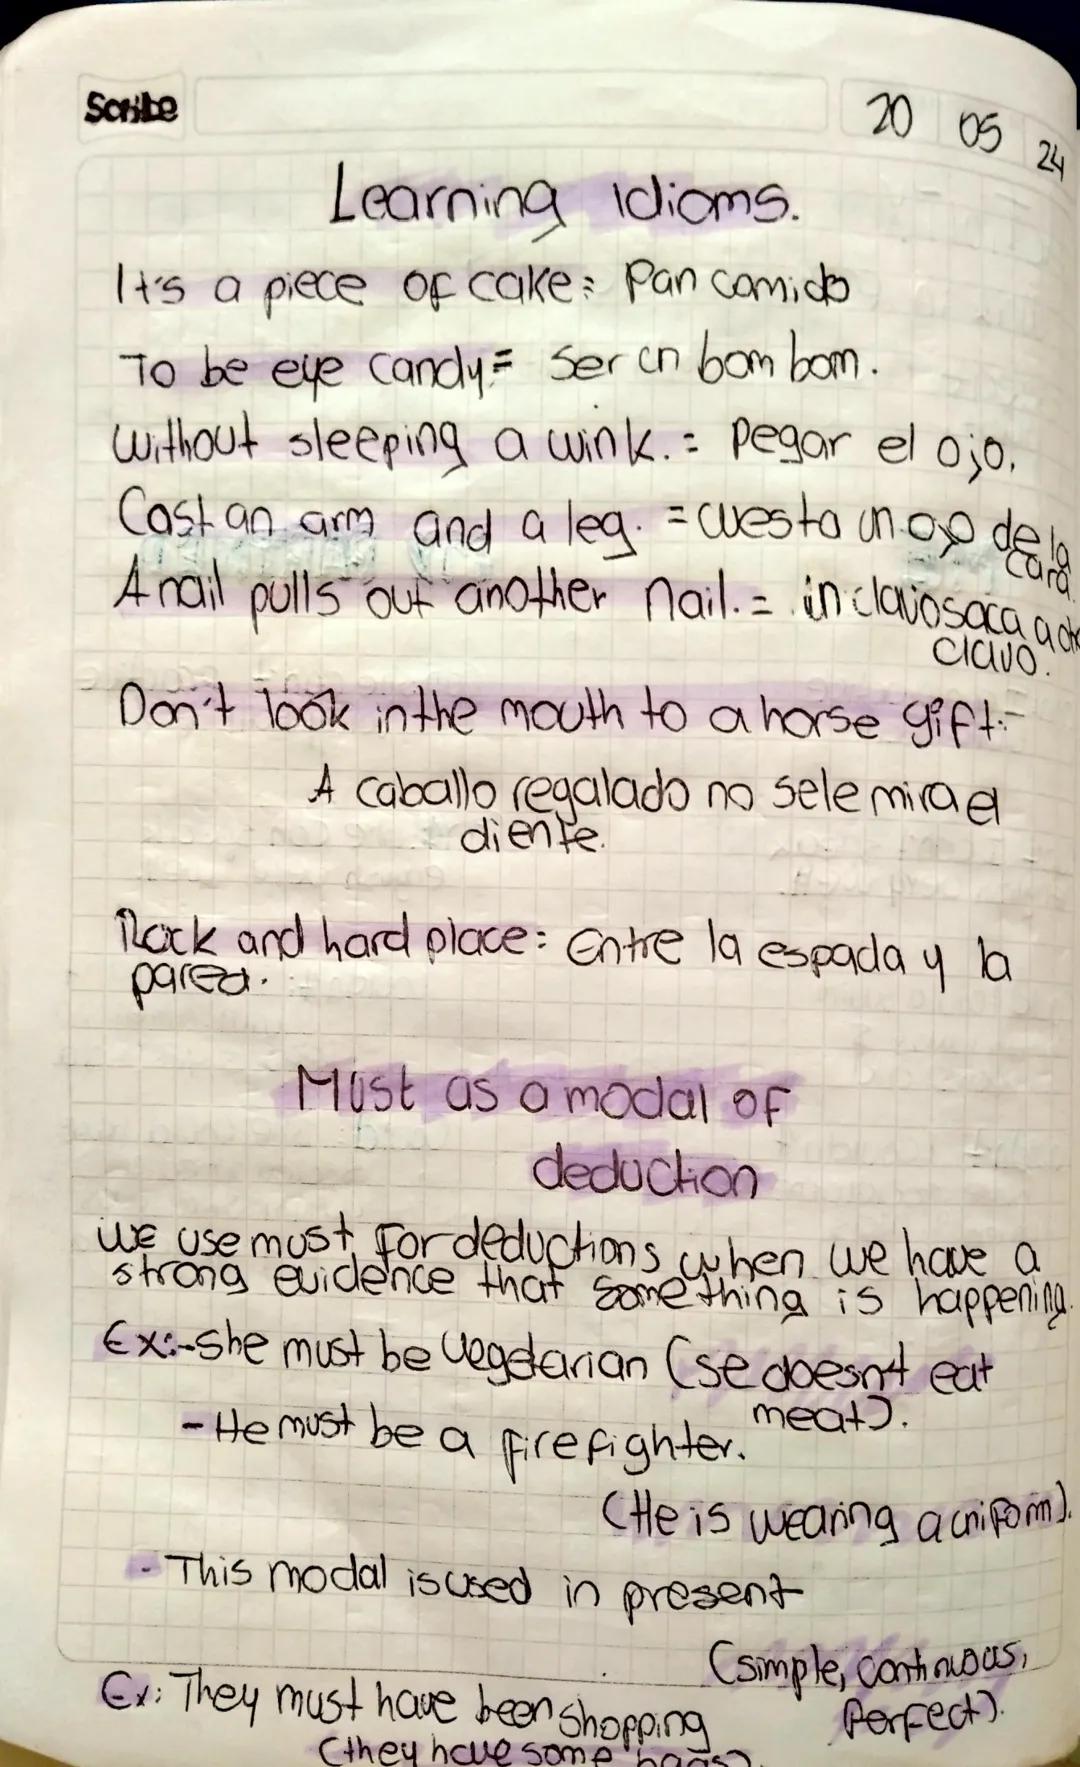 Scribe
20 05 24
Learning idioms.
It's a piece of cake: Pan comido
To be eye candy = Ser un bom bom.
Without sleeping a wink. = Pegar el ojo.
Cost an arm and a leg. = cuesta un ojo de la
cara.
A nail pulls out another nail. = un clavo saca a otro
clavo.
Don't look in the mouth to a horse gift:-
A caballo regalado no se le mira el
diente.
Rock and hard place: Entre la espada y la
pared.
Must as a modal of
deduction
We use must for deductions when we have a
strong evidence that something is happening.
Ex:-She must be vegetarian (se doesn't eat
meat).
- He must be a firefighter.
(He is wearing a uniform).
- This modal is used in present
(simple, continuous,
Perfect).
Ex: They must have been shopping
(they have some bags).